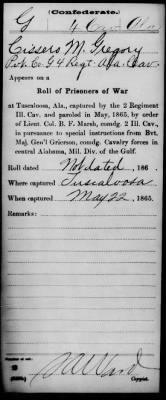 (Confederate.)
G 4 Cav Ala
Cissero M. Gregory
Pvt. Co G 4 Regt Ala. Cav.
Appears on a
Roll of Prisoners of War
at Tuscaloosa, Ala., captured by the 2 Regiment
Ill. Cav. and paroled in May, 1865, by order
of Lieut. Col. B. F. Marsh, comdg. 2 Ill. Cav.,
in pursuance to special instructions from Bvt.
Maj. Gen'l Grierson, comdg. Cavalry forces in
central Alabama, Mil. Div. of the Gulf.
Roll dated Not dated, 186 .
Where captured Tuscaloosa
When captured May 22, 1865.
Remarks:
Number of roll:
Copyist.